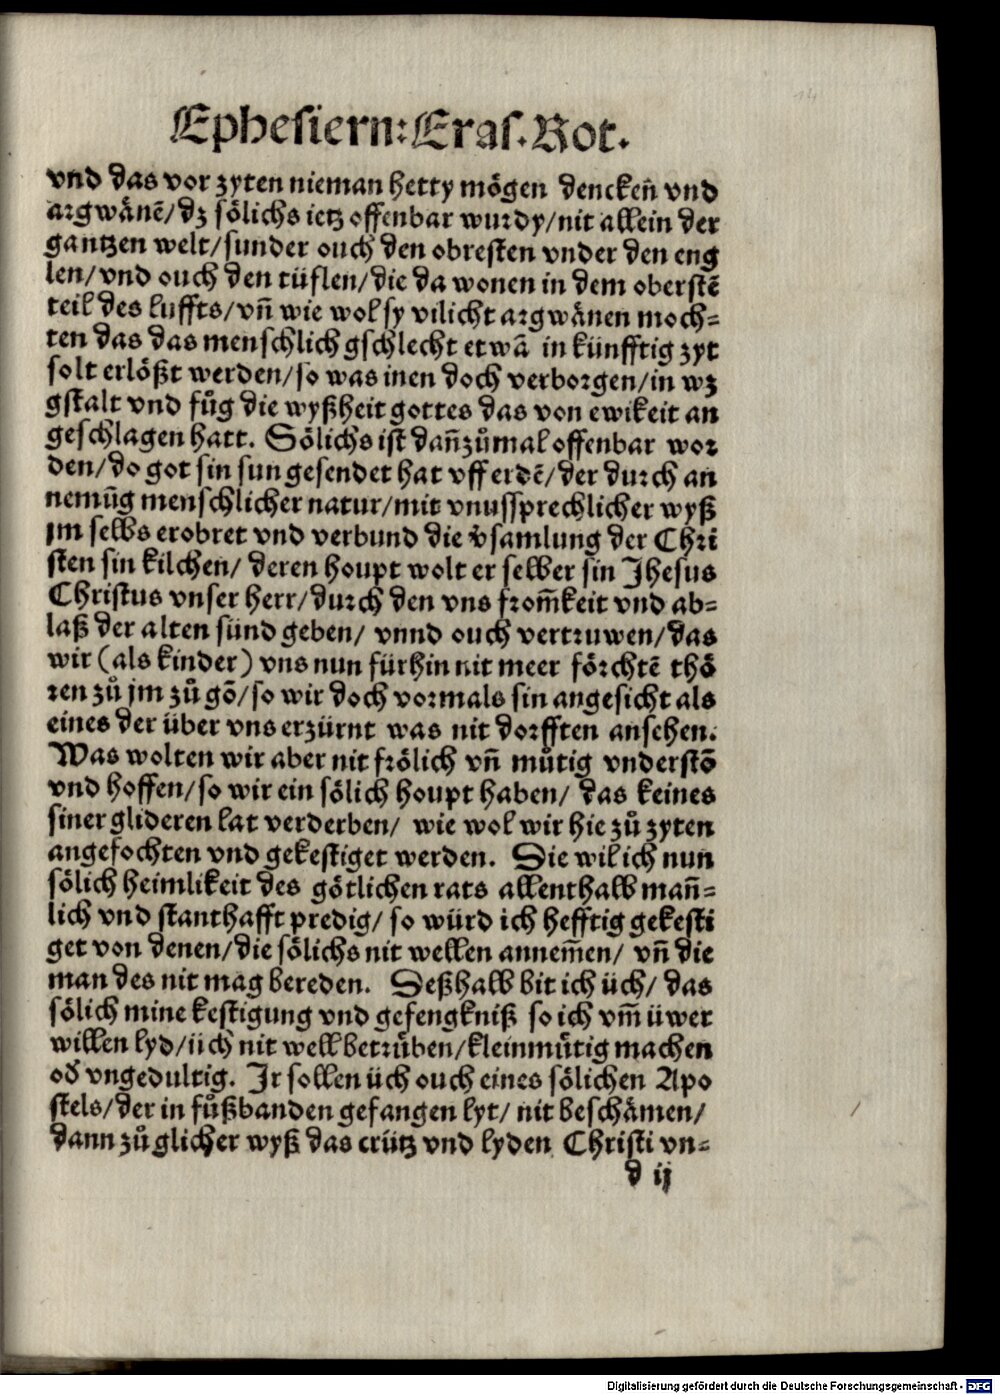 Ephesiern: Eras. Rot.
vnd das vor zyten nieman hetty mögen denckeñ vnd
argwänē/dz sölichs ietz offenbar wurdy/nit allein der
gantzen welt/sunder ouch den obresten vnder den eng
len/vnd ouch den tüflen/die da wonen in dem oberstē
teil des luffts/vñ wie wol sy vilicht argwänen moch=
ten das das menschlich gschlecht etwā in künfftig zyt
solt erlößt werden/so was inen doch verborgen/in wz
gstalt vnd fůg die wyßheit gottes das von ewikeit an
geschlagen hatt. Sölichs ist dañzůmal offenbar wor
den/do got sin sun gesendet hat vff erdē/der durch an
nemūg menschlicher natur/mit vnussprechlicher wyß
jm selbs erobret vnd verbund die v̊samlung der Chri
sten sin kilchen/ deren houpt wolt er selber sin Jhesus
Christus vnser herr/durch den vns from̄keit vnd ab=
laß der alten sünd geben/ vnnd ouch vertruwen/das
wir (als kinder) vns nun fürhin nit meer förchtē thö
ren zů jm zů gō/so wir doch vormals sin angesicht als
eines der über vns erzürnt was nit dorfften ansehen.
Was wolten wir aber nit frölich vñ můtig vnderstō
vnd hoffen/so wir ein sölich houpt haben/ das keines
siner glideren lat verderben/ wie wol wir hie zů zyten
angefochten vnd gekestiget werden. Die wil ich nun
sölich heimlikeit des götlichen rats allenthalb mañ=
lich vnd stanthafft predig/ so würd ich hefftig gekesti
get von denen/die sölichs nit wellen annem̄en/ vñ die
man des nit mag bereden. Deßhalb bit ich üch/ das
sölich mine kestigung vnd gefengkniß so ich vm̄ üwer
willen lyd/üch nit well betrůben/kleinmůtig machen
od̕ vngedultig. Ir sollen üch ouch eines sölichen Apo
stels/der in fůßbanden gefangen lyt/ nit beschämen/
dann zů glicher wyß das crütz vnd lyden Christi vn=
d ij
Digitalisierung gefördert durch die Deutsche Forschungsgemeinschaft - DFG